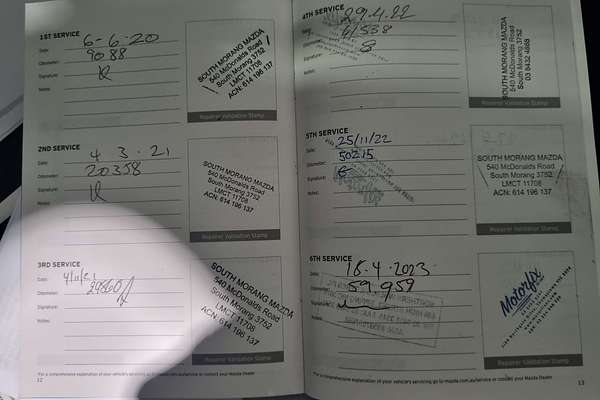 1ST SERVICE
Date: 6-6-20
Odometer: 9088
Signature:
Notes:
SOUTH MORANG MAZDA
540 McDonalds Road
South Morang 3752
LMCT 11708
ACN: 614 196 137
Repairer Validation Stamp
2ND SERVICE
Date: 4 3 . 21
Odometer: 20358
Signature:
Notes:
SOUTH MORANG MAZDA
540 McDonalds Road
South Morang 3752
LMCT 11708
ACN: 614 196 137
Repairer Validation Stamp
3RD SERVICE
Date: 4/11/21
Odometer:
Signature:
Notes:
SOUTH MORANG MAZDA
540 McDonalds Road
South Morang 3752
LMCT 11708
ACN: 614 196 137
Repairer Validation Stamp
*For a comprehensive explanation of your vehicle's servicing go to mazda.com.au/service or contact your Mazda Dealer
12
4TH SERVICE
Date: 29.4.22
Signature:
Notes:
SOUTH MORANG MAZDA
540 McDonalds Road
South Morang 3752
03 8432 4888
Repairer Validation Stamp
5TH SERVICE
Date: 25/11/22
Odometer: 50215
Signature:
Notes:
SOUTH MORANG MAZDA
540 McDonalds Road
South Morang 3752
LMCT 11708
ACN: 614 196 137
Repairer Validation Stamp
6TH SERVICE
Date: 18.4.2023
Odometer: 59,959
Signature:
Notes:
Motorfix
Repairer Validation Stamp
*For a comprehensive explanation of your vehicle's servicing go to mazda.com.au/service or contact your Mazda Dealer
13